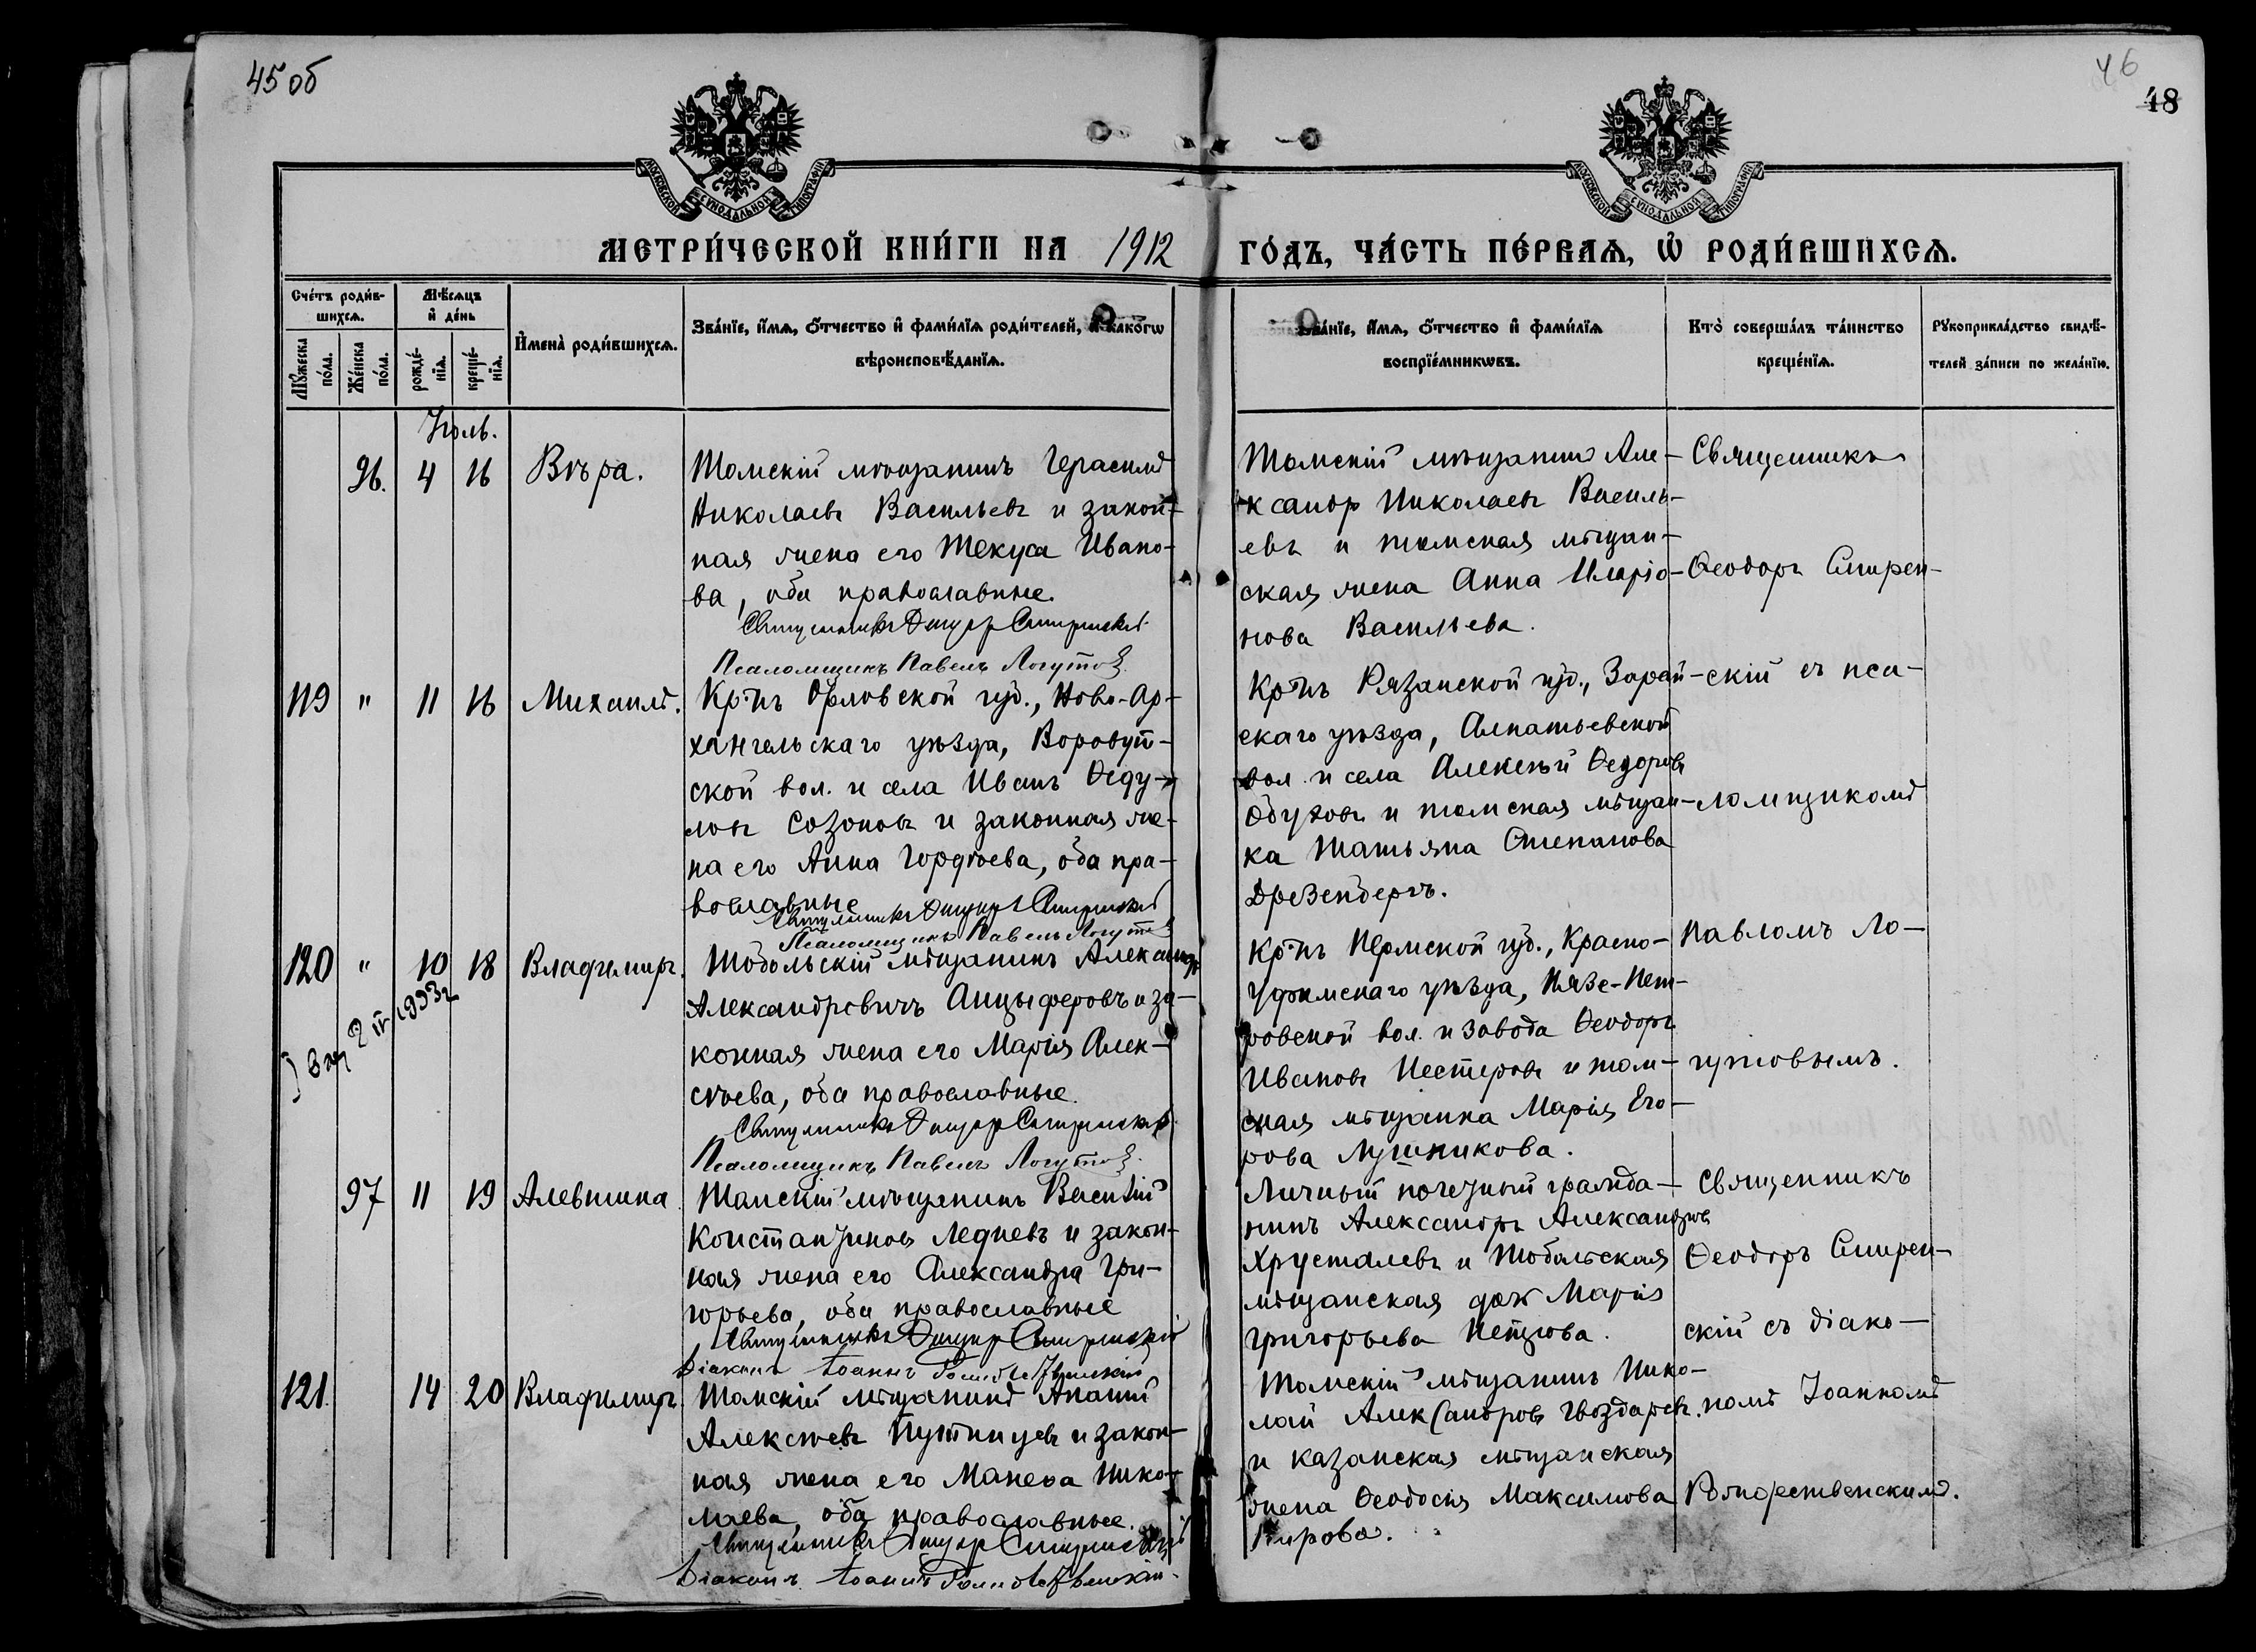 45 об
46
48
МОСКОВСКОЙ СѴНОДАЛЬНОЙ ТИПОГРАФІИ
МОСКОВСКОЙ СѴНОДАЛЬНОЙ ТИПОГРАФІИ
МЕТРИ́ЧЕСКОЙ КНИ́ГИ НА 1912 ГО́ДЪ, ЧА́СТЬ ПЕ́РВАѦ, Ѡ҆ РОДИ́ВШИХСѦ.
Сче́тъ роди́в-
шихсѧ.
Мѣ́сѧцъ
и҆ де́нь
Мꙋ́жеска
по́ла.
Же́нска
по́ла.
рожде́-
нїѧ.
креще́-
нїѧ.
И҆мена̀ роди́вшихсѧ.
Зва́нїе, и҆́мѧ, ѻ҆́тчество и҆ фами́лїѧ роди́телей, и҆ како́гѡ
вѣроисповѣ́данїѧ.
Зва́нїе, и҆́мѧ, ѻ҆́тчество и҆ фами́лїѧ
воспрїе́мникѡвъ.
Кто̀ соверша́лъ та́инство
креще́нїѧ.
Рꙋкоприкла́дство свидѣ́-
телей за́писи по жела́нїю.
Іюль.
96. 4 16 Вѣра.
Томскій мѣщанинъ Герасимъ
Николаевъ Васильевъ и закон-
ная жена его Текуса Ивано-
ва, оба православные.
Священникъ Ѳеодоръ Смиренскій
Псаломщикъ Павелъ Логутовъ
Томскій мѣщанинъ Але-
ксандръ Николаевъ Василь-
евъ и томская мѣщан-
ская жена Анна Иларіо-
нова Васильева.
Священникъ
Ѳеодоръ Смирен-
119 " 11 16 Михаилъ.
Кр-нъ Орловской губ., Ново-Ар-
хангельскаго уѣзда,
ской вол. и села Иванъ Ѳеду-
ловъ Созоновъ и законная же-
на его Анна Гордѣева, оба пра-
вославные
Священникъ Ѳеодоръ Смиренскій
Псаломщикъ Павелъ Логутовъ
Кр-нъ Рязанской губ., Зарай-
скаго уѣзда, Алпатьевской
вол. и села Алексѣй Ѳедоровъ
Обуховъ и томская мѣщан-
ка Татьяна Степанова
Дрезенбергъ.
скій съ пса-
ломщикомъ
120 " 10 18 Владиміръ.
Тобольскій мѣщанинъ Александръ
Александровичъ Анцыферовъ и за-
конная жена его Марія Алек-
сѣева, оба православные.
Священникъ Ѳеодоръ Смиренскій
Псаломщикъ Павелъ Логутовъ
2 IV 1993г
Кр-нъ Пермской губ., Красно-
уфимскаго уѣзда, Нязе-Пет-
ровской вол. и завода Ѳеодоръ
Ивановъ Нестеровъ и том-
ская мѣщанка Марія Его-
рова Лушникова.
Павломъ Ло-
гутовымъ.
97 11 19 Алевтина
Томскій мѣщанинъ Василій
Константиновъ Ледневъ и закон-
ная жена его Александра Гри-
горьева, оба православные
Священникъ Ѳеодоръ Смиренскій
Діаконъ Іоаннъ Рождественскій
Личный почетный гражда-
нинъ Александръ Александровъ
Хрусталевъ и Тобольская
мѣщанская дочь Марія
Григорьева
Священникъ
Ѳеодоръ Смирен-
скій съ діако-
121. 14 20 Владиміръ
Томскій мѣщанинъ
Алексѣевъ Путинцевъ и закон-
ная жена его Манефа Нико-
лаева, оба православные.
Священникъ Ѳеодоръ Смиренскій
Діаконъ Іоаннъ Рождественскій
Томскій мѣщанинъ Нико-
лай Александровъ Гвоздаревъ
и казанская мѣщанская
жена Ѳеодосія Максимова
Кирова.
номъ Іоанномъ
Рождественскимъ.